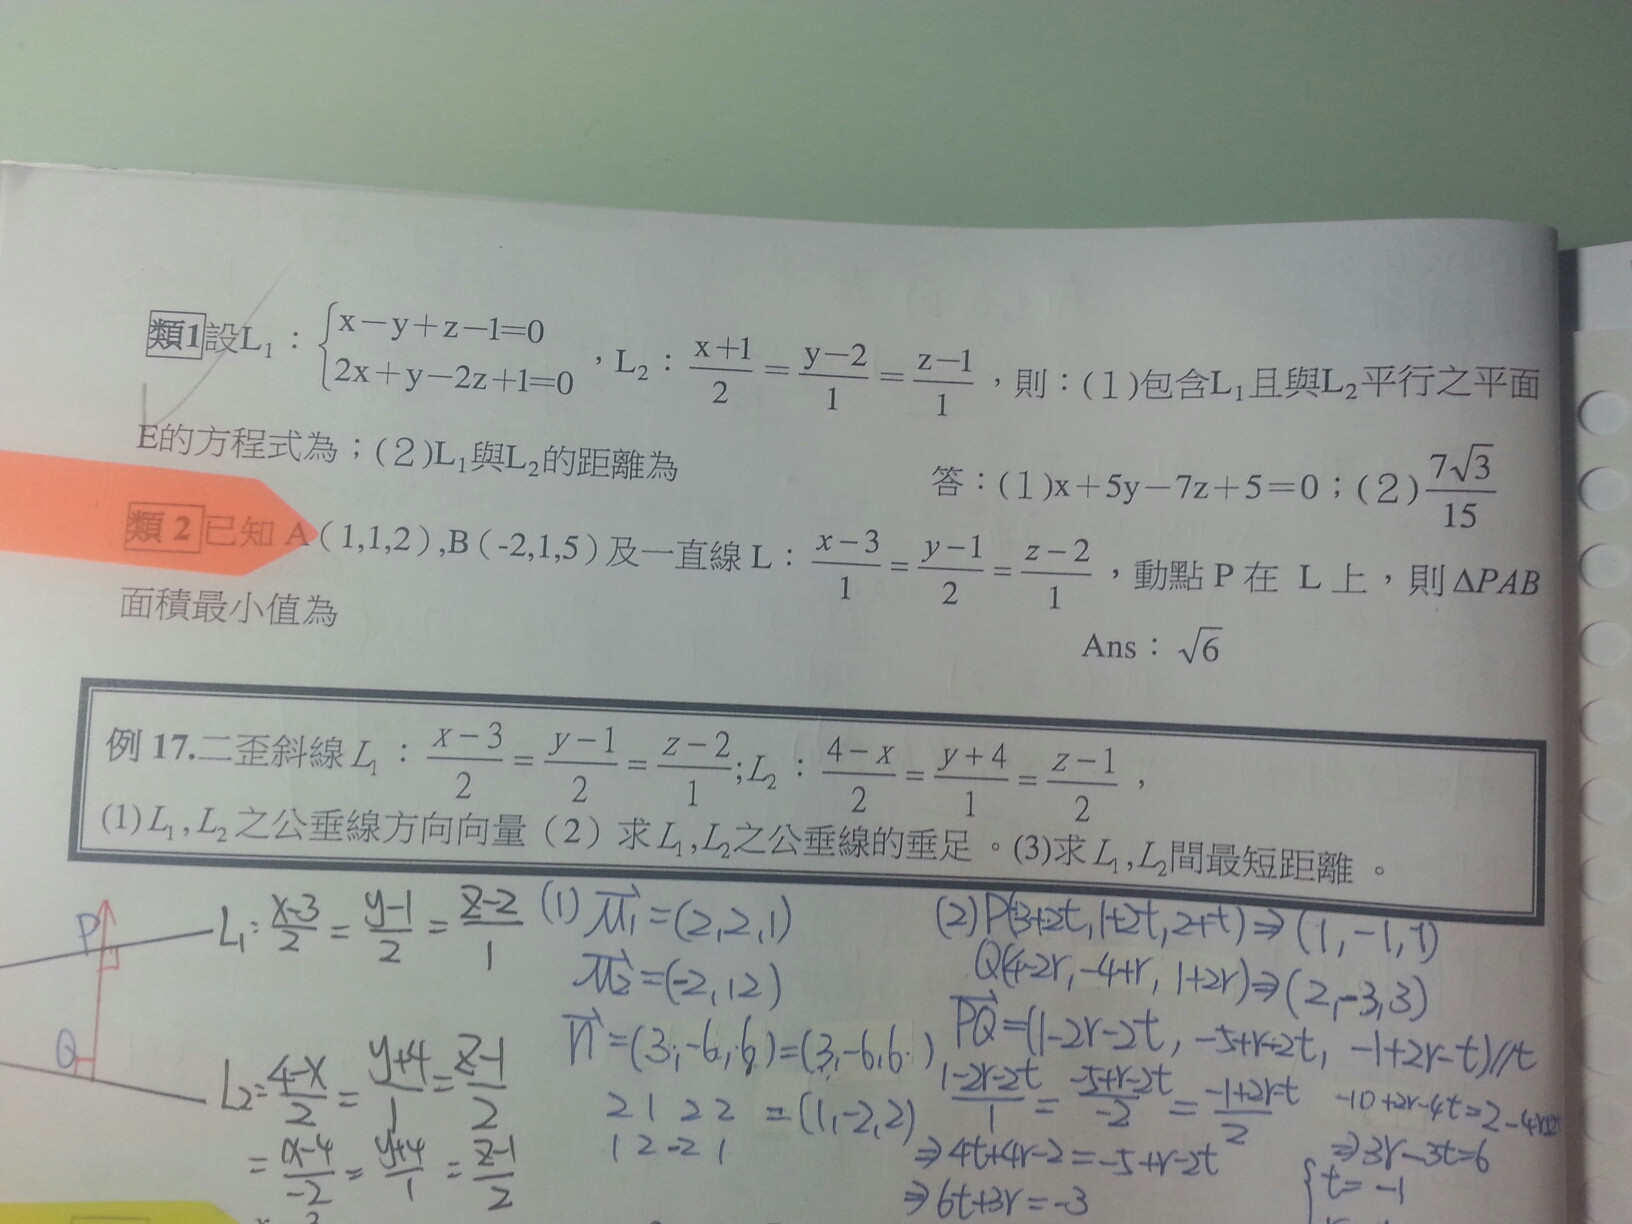 類1設L₁：{x－y＋z－1=0 2x＋y－2z＋1=0，L₂：(x＋1)/2 = (y－2)/1 = (z－1)/1，則：(1)包含L₁且與L₂平行之平面
E的方程式為；(2)L₁與L₂的距離為
答：(1)x＋5y－7z＋5＝0；(2)7√3/15
類2已知 A(1,1,2),B(-2,1,5)及一直線L：(x－3)/1 = (y－1)/2 = (z－2)/1，動點P在 L上，則ΔPAB
面積最小值為
Ans：√6
例17.二歪斜線L₁：(x－3)/2 = (y－1)/2 = (z－2)/1;L₂：(4－x)/2 = (y＋4)/1 = (z－1)/2，
(1)L₁,L₂之公垂線方向向量（2）求L₁,L₂之公垂線的垂足。(3)求L₁,L₂間最短距離。
P
Q
L₁: (x-3)/2 = (y-1)/2 = (z-2)/1
L₂= (4-x)/2 = (y+4)/1 = (z-1)/2
= (x-4)/-2 = (y+4)/1 = (z-1)/2
(1) μ₁=(2,2,1)
μ₂=(-2,12)
n=(3,-6,6)=(3,-6,6)
2 1 2 2 =(1,-2,2)
1 2 -2 1
(2)P(3+2t,1+2t,2+t)⇒(1,-1,1)
Q(4-2r,-4+r,1+2r)⇒(2,-3,3)
PQ=(1-2r-2t,-5+r-2t,-1+2r-t)//t
(1-2r-2t)/1 = (-5+r-2t)/-2 = (-1+2r-t)/2
⇒4t+4r-2=-5+r-2t
⇒6t+3r=-3
⇒3r-3t=6
t=-1